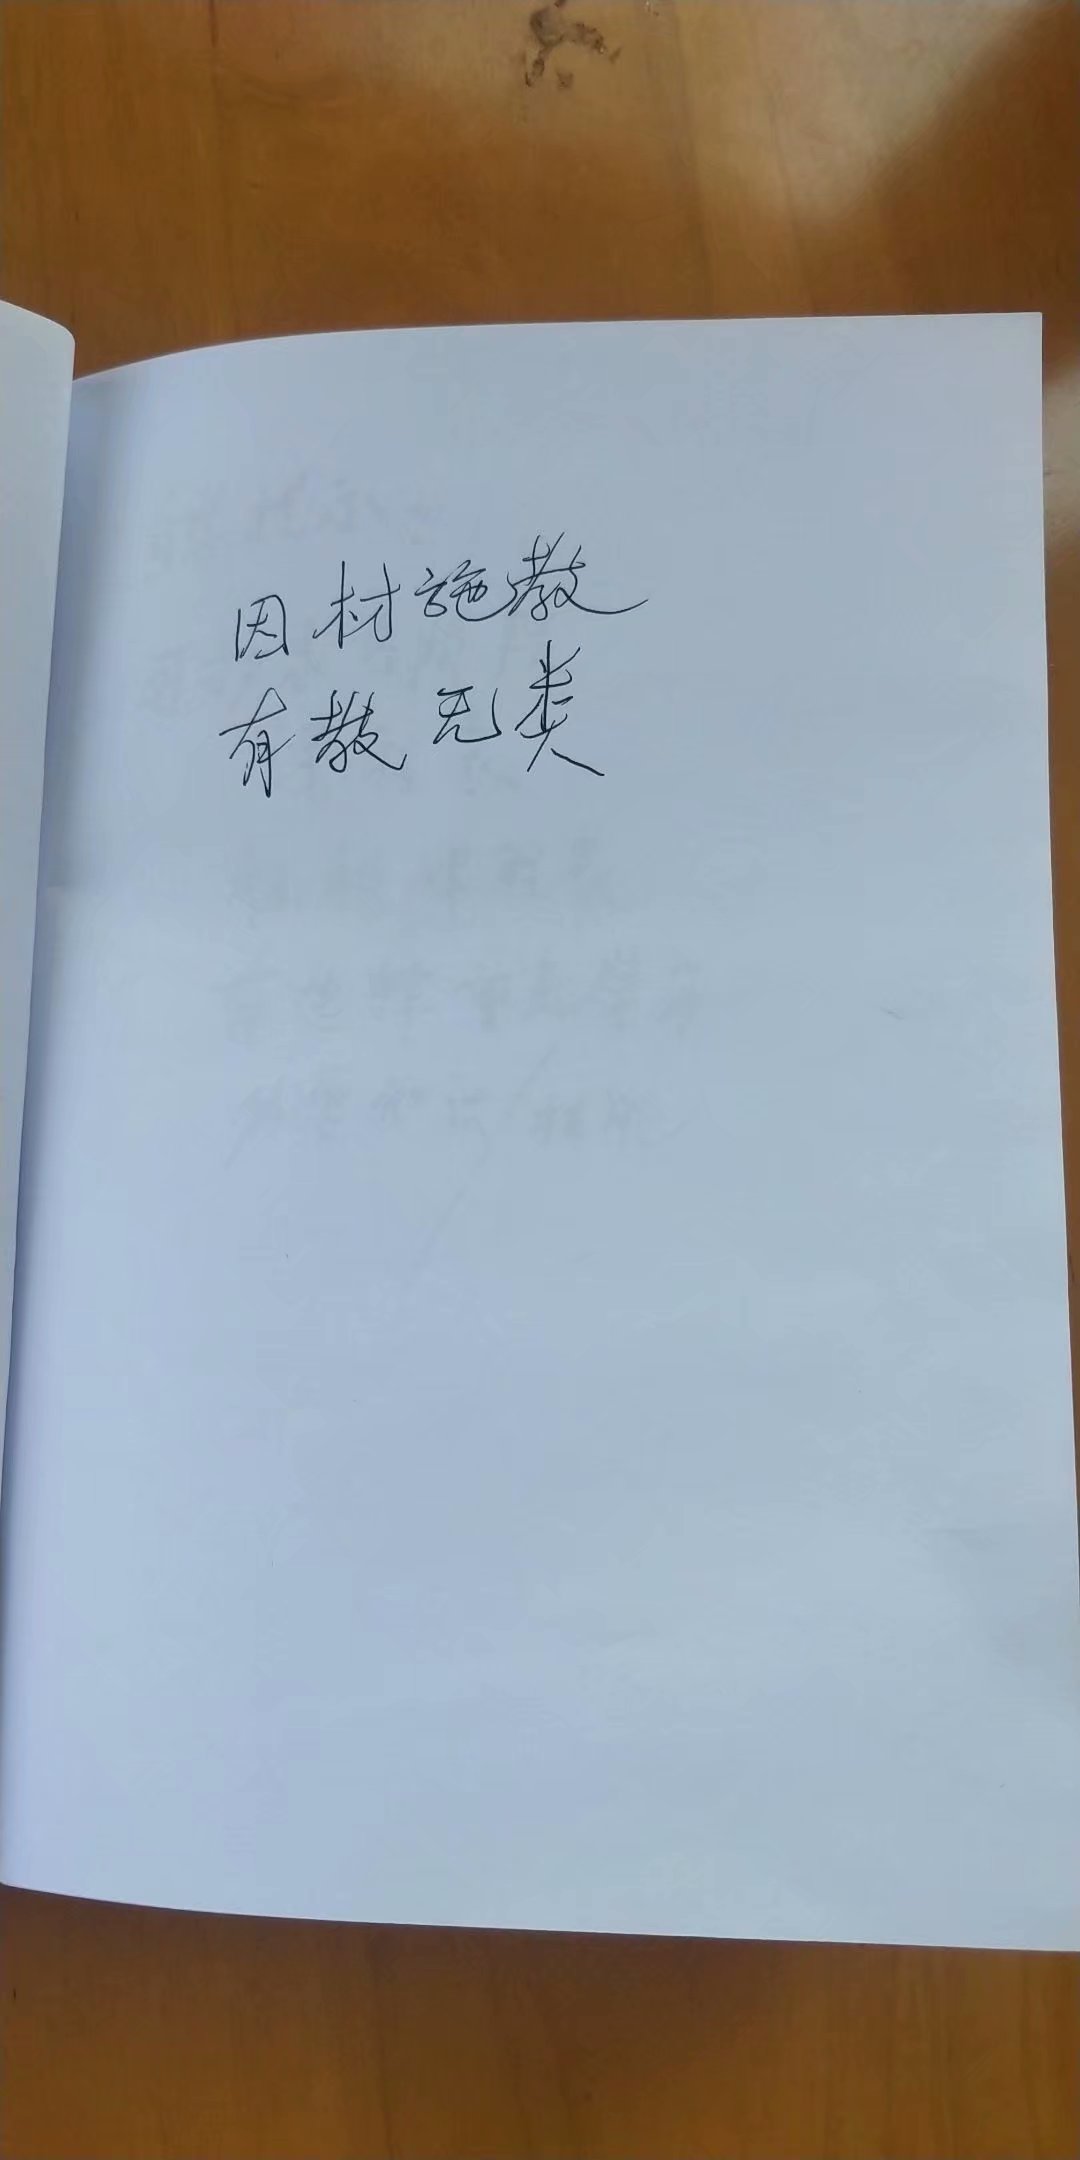 因材施教
有教无类